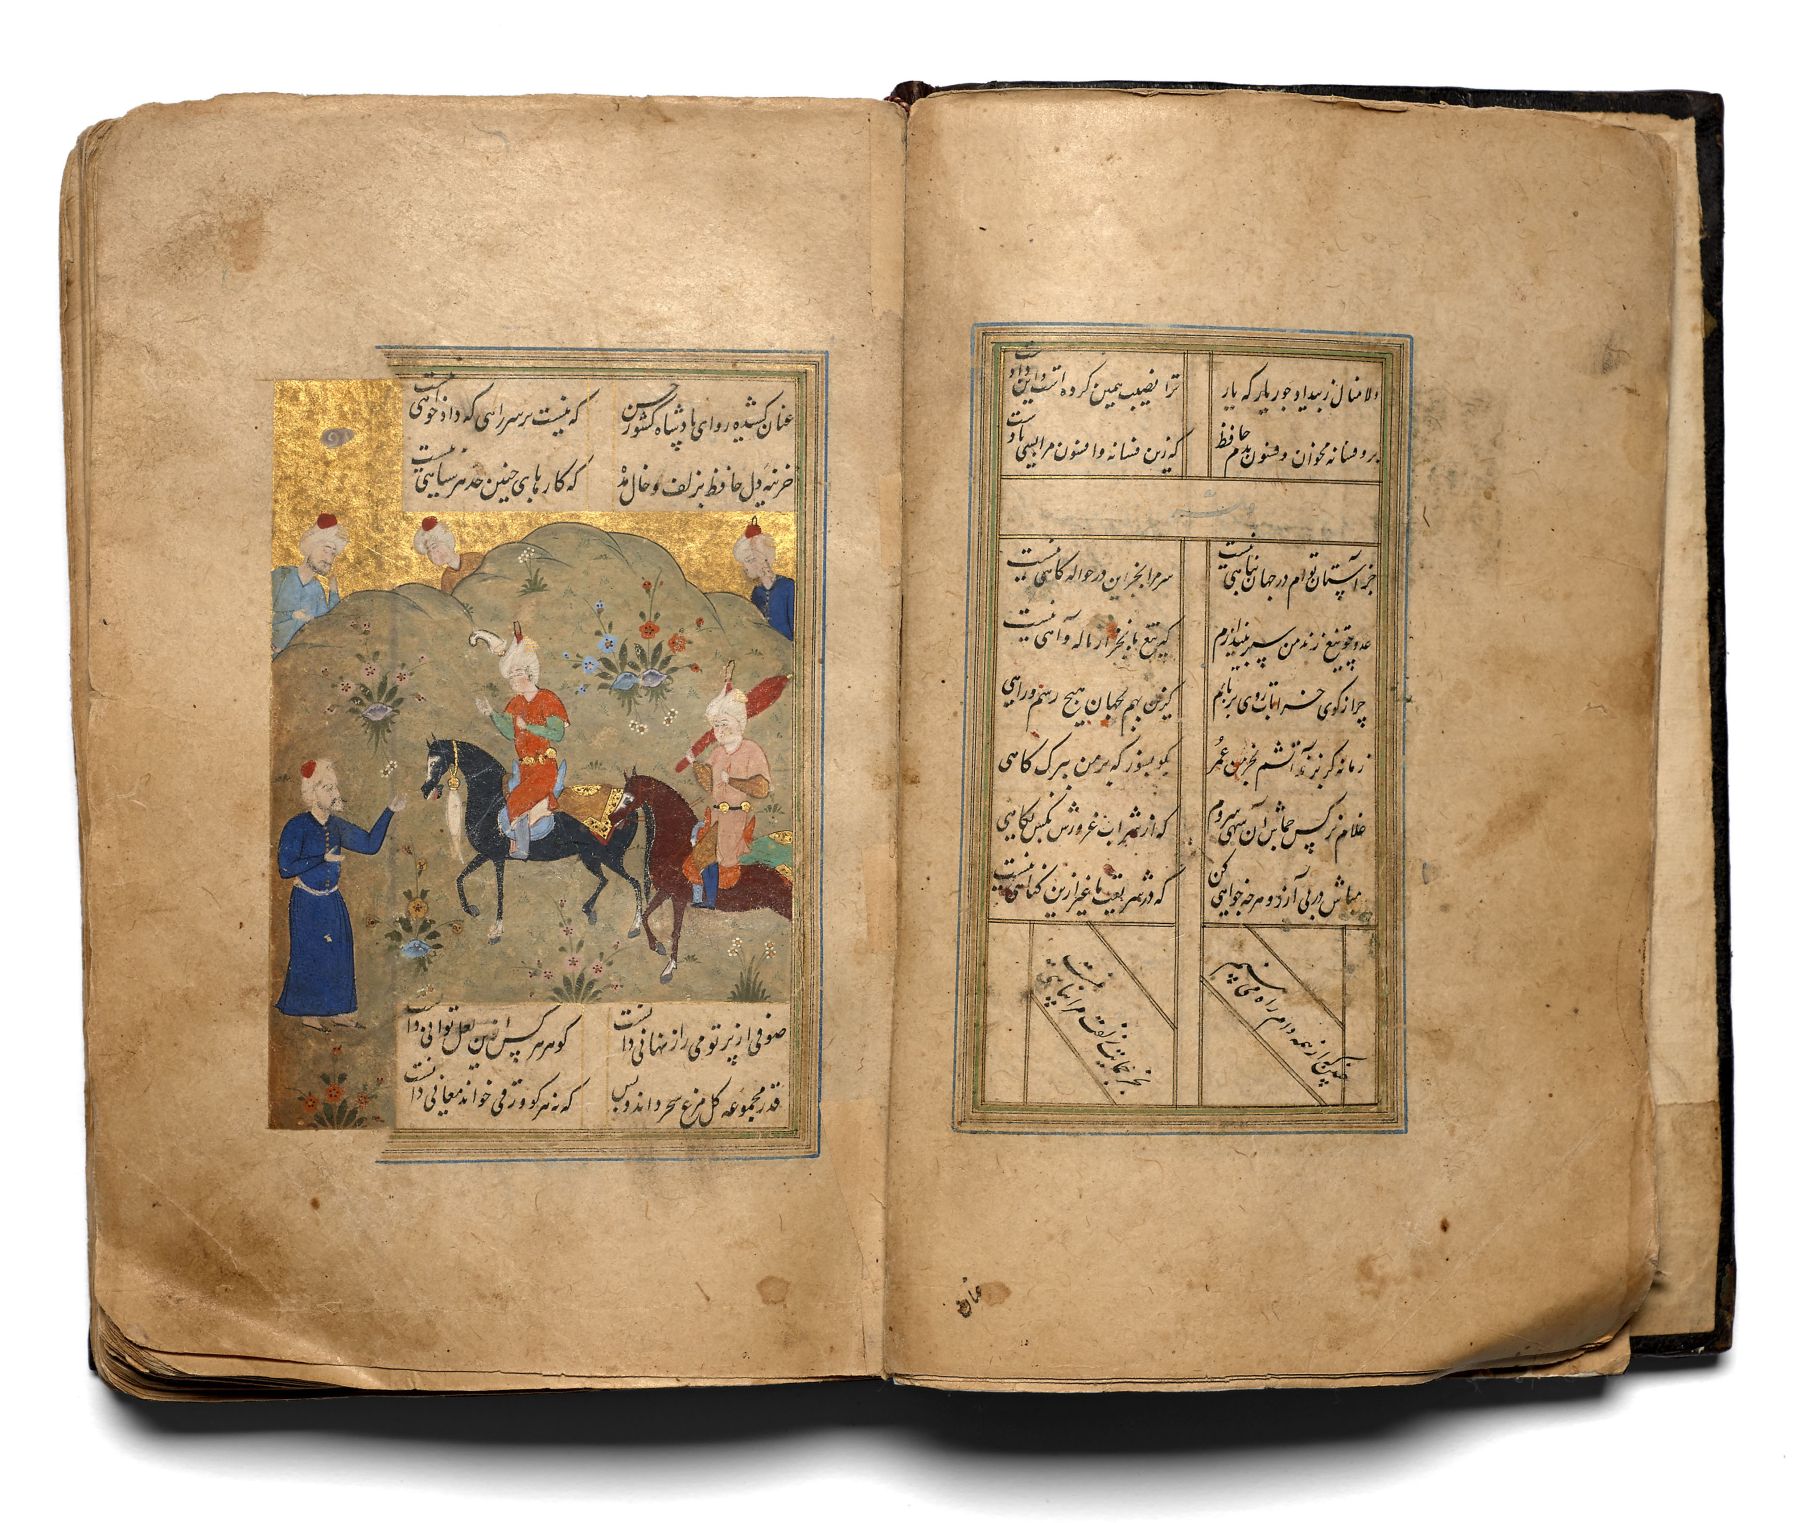 دلا منال ز بیداد و جور یار که یار ترا نصیب همین کرده است و این داد
برو فسانه مخوان و فسون مدم حافظ که زین فسانه و افسون مرا بسی یادست
جز آستان توام در جهان پناهی نیست سر مرا بجز این در حواله کاهی نیست
عدو چو تیغ زند من سپر بیندازم که تیغ ما بجز از ناله و آهی نیست
چرا ز کوی خرابات روی برتابم کزین بهم بجهان هیچ رسم و راهی
زمانه کر بزند آتشم بخرمن عمر بکو بسوز که بر من ببرک کاهی
غلام نرکس جماش آن سهی سروم که از شراب غرورش بکس نکاهی
مباش در پی آزار و هرچه خواهی کن که در شریعت ما غیر ازین کناهی نیست
چنین که از همه سو دام راه می بینم
بجز حمایت زلفت مرا پناهی نیست
عنان
عنان کشیده رو ای پادشاه کشور حسن که نیست بر سر راهی که دادخواهی نیست
خزینه دل حافظ بزلف و خال مده که کارهای چنین حد هر سیاهی نیست
صوفی از پرتو می راز نهانی دانست کوهر هر کس ازین لعل توانی دانست
قدر مجموعه کل مرغ سحر داند و بس که نه هر کو ورقی خواند معانی دانست